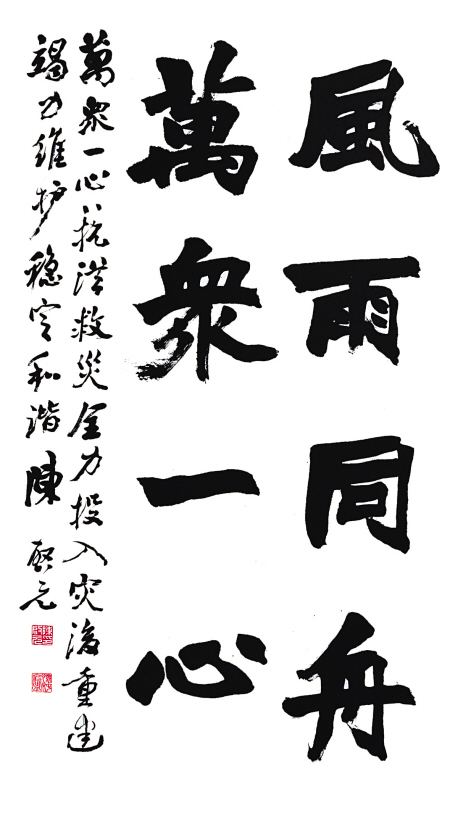 風雨同舟
萬衆一心
萬衆一心抗洪救災全力投入灾后重建
竭力維护稳定和谐陳啓元